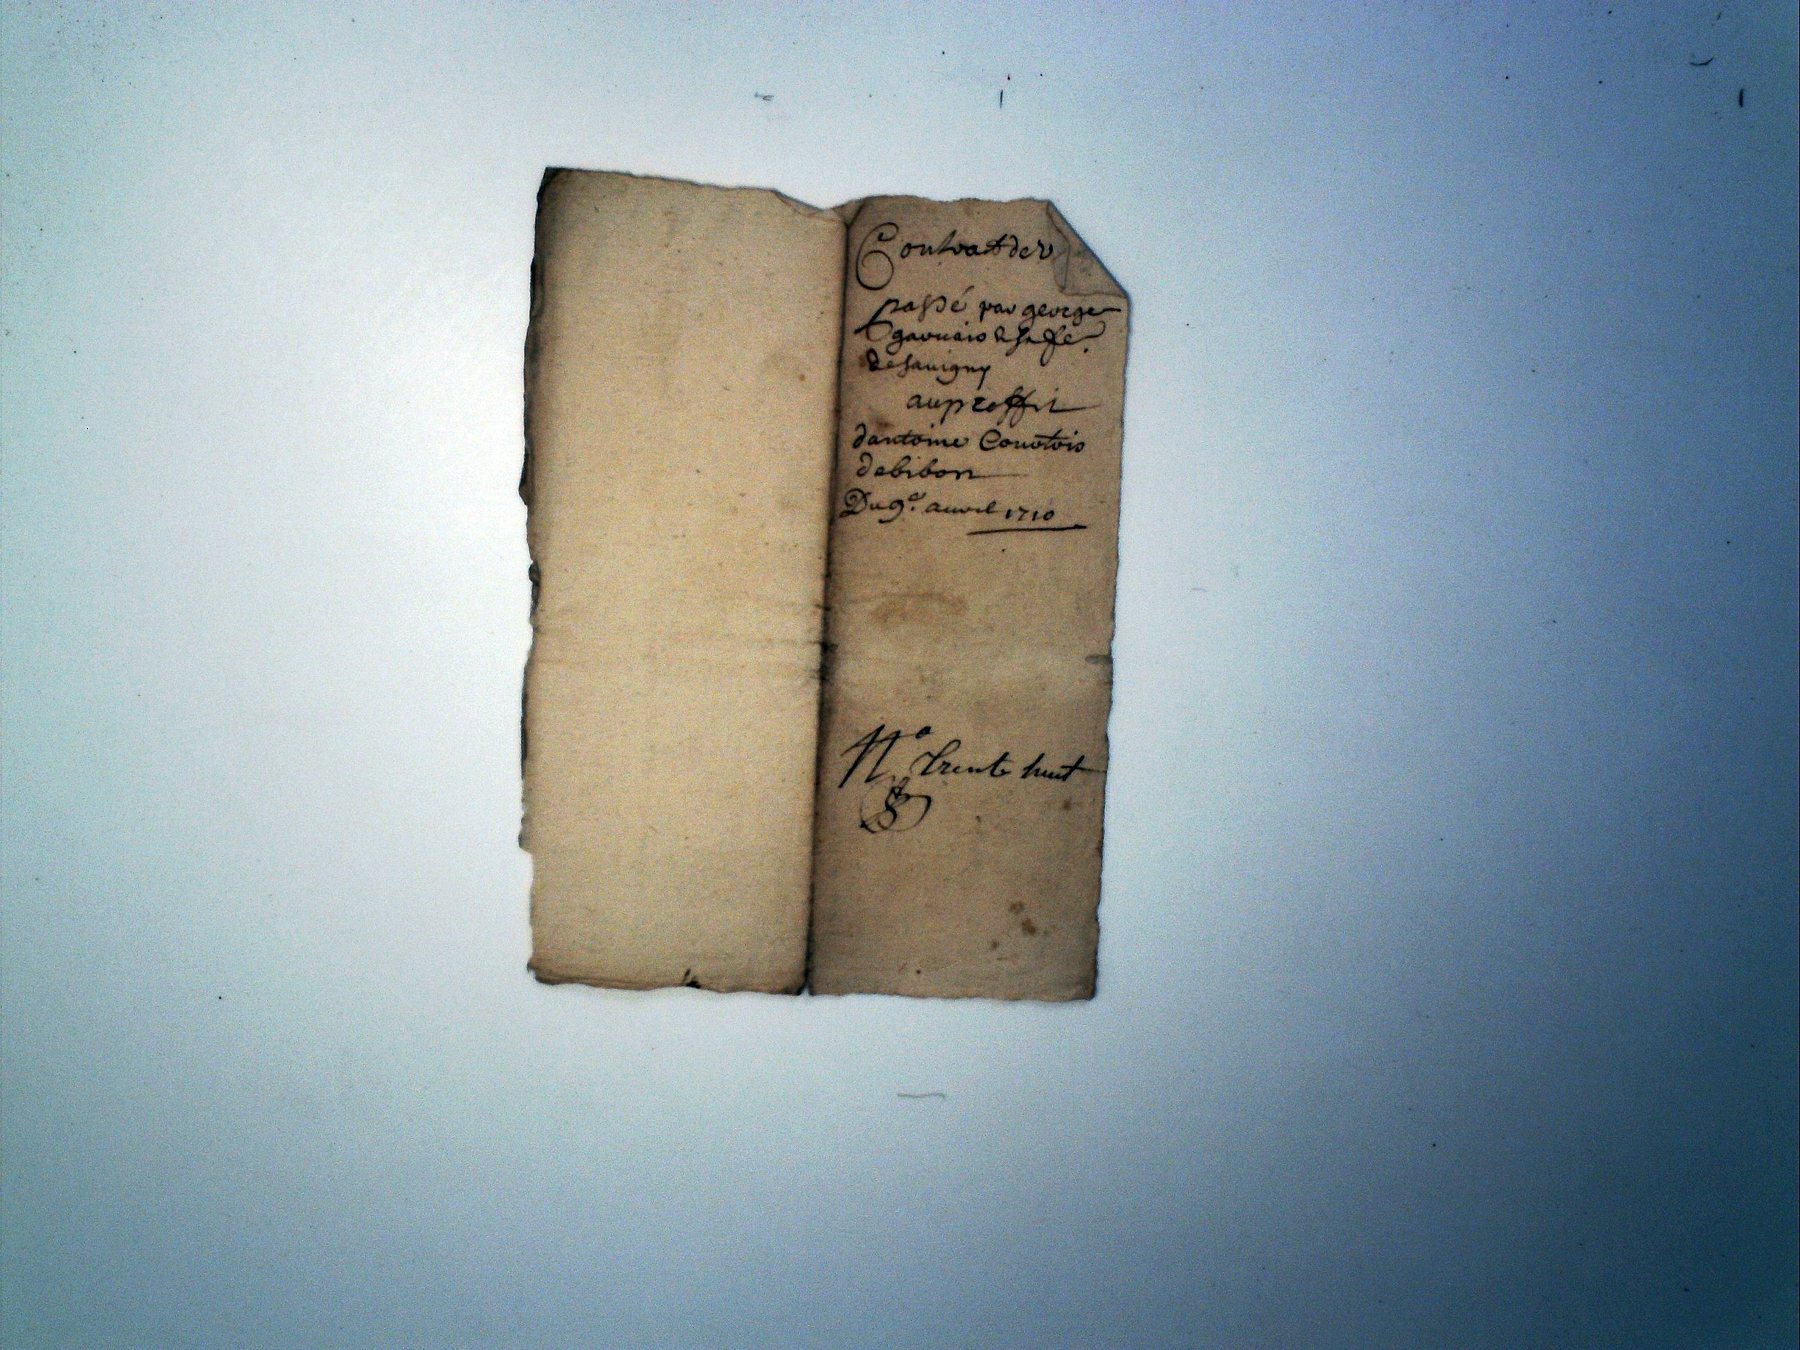 Contract de v
passé par george
garnais & sa fe.
de savigny
au proffit
dantoine Courtois
de bibon
Du 9e. auril 1710
No. trente huit